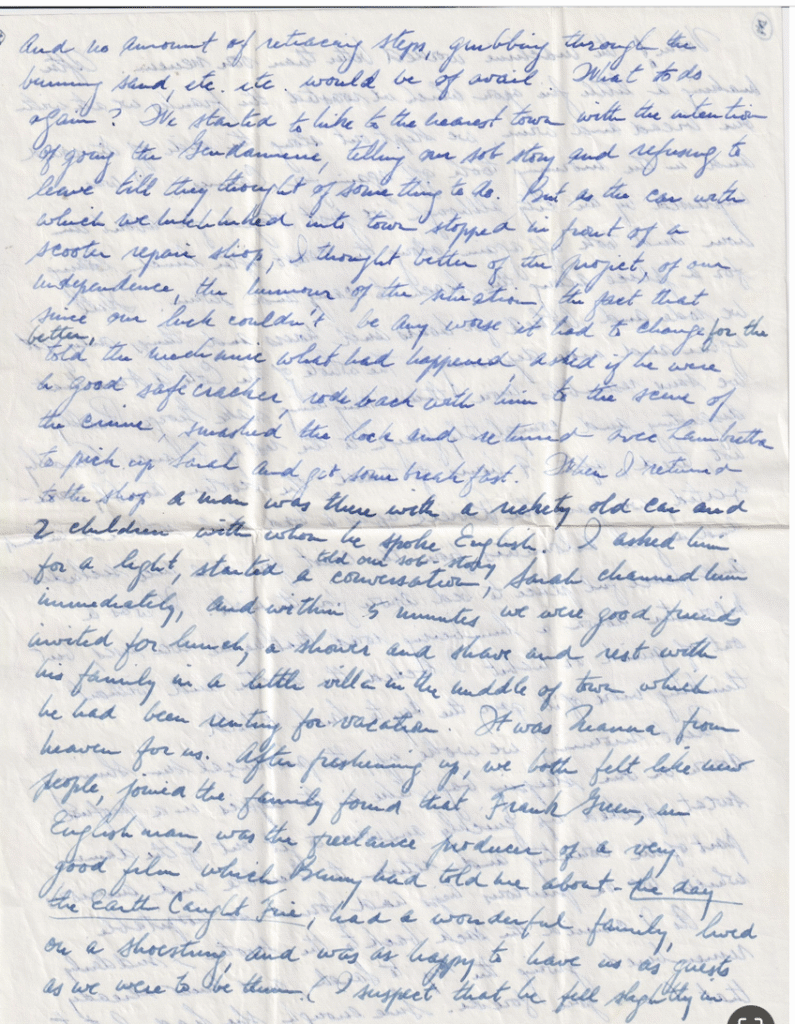 8
And no amount of retracing steps, grubbing through the
burning sand, etc. etc. would be of avail. What to do
again? We started to hike to the nearest town with the intention
of going the Gendarmerie, telling our sob story and refusing to
leave till they thought of something to do. But as the car with
which we hitchhiked into town stopped in front of a
scooter repair shop, I thought better of the projet, of our
independence, the humour of the situation, the fact that
since our luck couldn't be any worse it had to change for the
better,
told the mechanic what had happened, asked if he were
a good safecracker, rode back with him to the scene of
the crime, smashed the lock and returned avec Lambretta
to pick up Sarah and get some breakfast. When I returned
to the shop a man was there with a rickety old car and
2 children with whom he spoke English. I asked him
told our sob-story
for a light, started a conversation, Sarah charmed him
immediately, and within 5 minutes we were good friends
invited for lunch, a shower and shave and rest with
his family in a little villa in the middle of town which
he had been renting for vacation. It was Manna from
heaven for us. After freshening up, we both felt like new
people, joined the family found that Frank Green, an
Englishman, was the freelance producer of a very
good film which Benny had told me about - the day
the Earth Caught Fire, had a wonderful family, lived
on a shoestring, and was as happy to have us as guests
as we were to be them. (I suspect that he fell slightly in